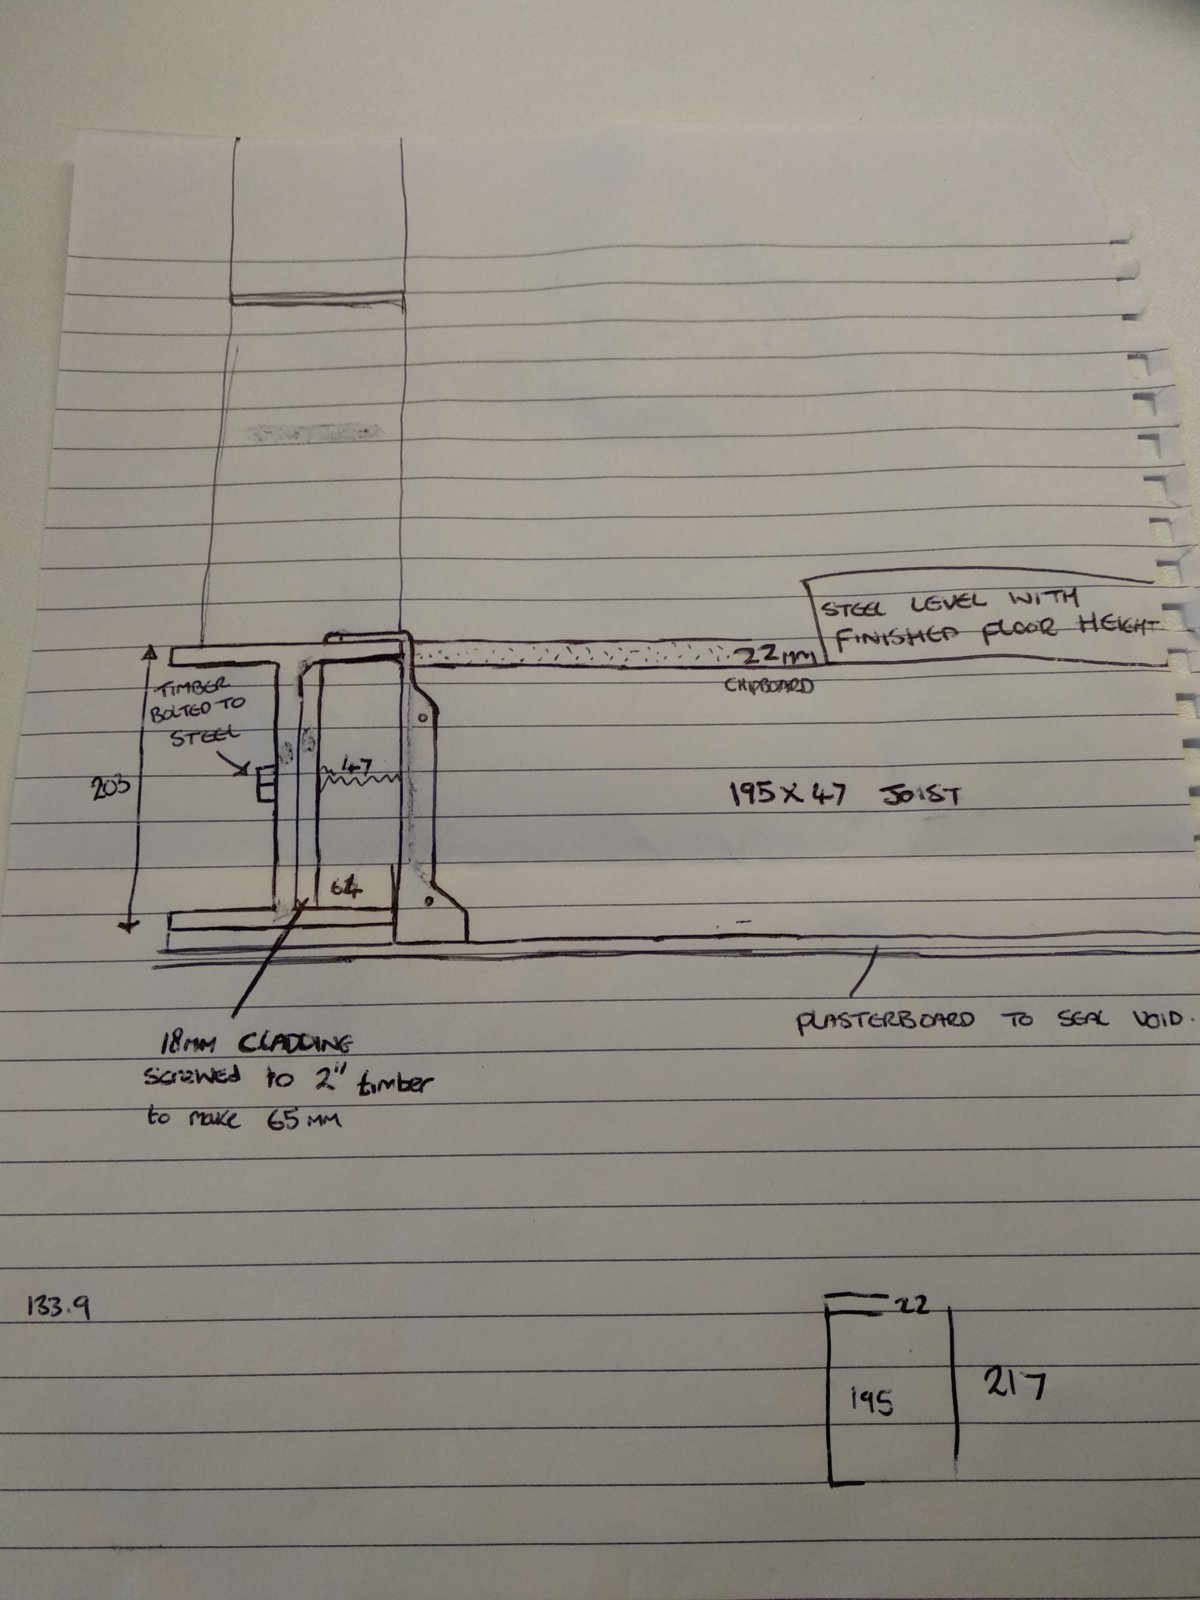 STEEL LEVEL WITH
FINISHED FLOOR HEIGHT
22MM
CHIPBOARD
TIMBER
BOLTED TO
STEEL
203
47
195 X 47 JOIST
64
PLASTERBOARD TO SEAL VOID.
18MM CLADDING
SCREWED to 2" timber
to make 65MM
133.9
22
195
217